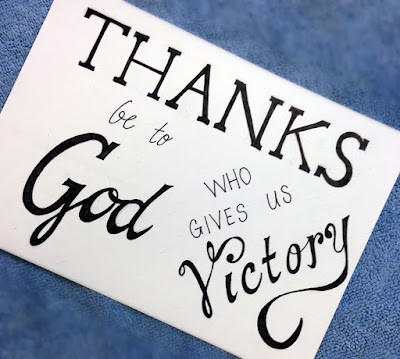 THANKS
be to
God
WHO
GIVES US
Victory